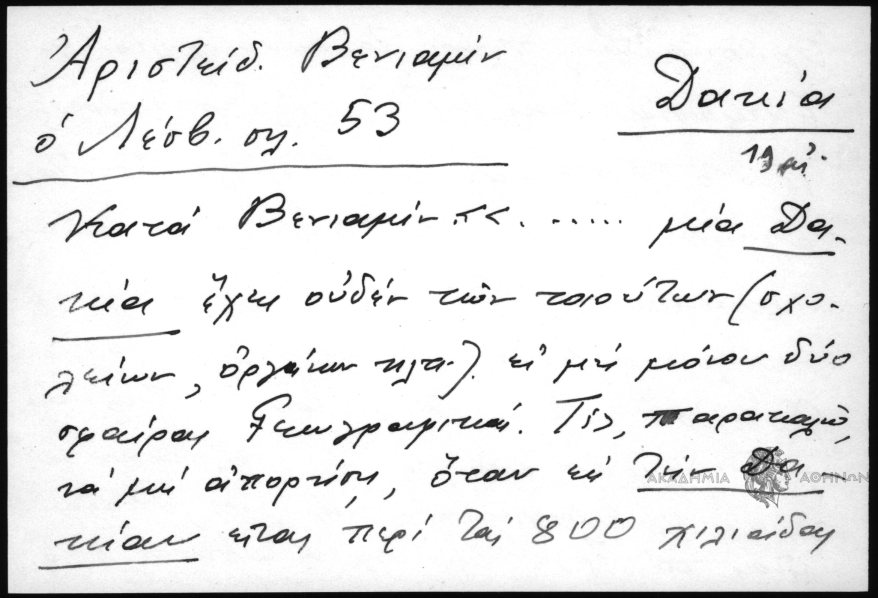 Ἀριστείδ. Βενιαμίν
ὁ Λέσβ. σελ. 53
Δακία
19 αἰ.
Κατά Βενιαμίν «...... μία Δα-
κία ἔχει οὐδέν τῶν τοιούτων (σχο-
λείων, ὀργάνων κλπ.) εἰ μή μόνον δύο
σφαίρας Γεωγραφικάς. Τίς, παρακαλῶ,
νά μή ἀπορήσῃ, ὅταν εἰς τήν Δα-
κίαν εἶναι περί τάς 800 χιλιάδας
ΑΚΑΔΗΜΙΑ ΑΘΗΝΩΝ